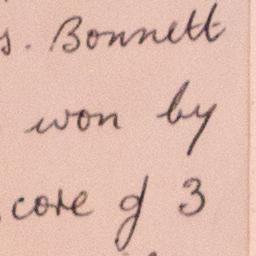 s. Bonnett
won by
core of 3